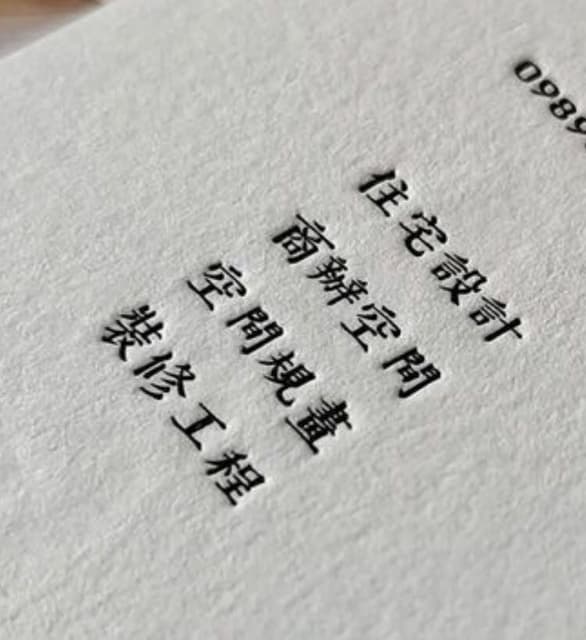 0989
住宅設計
商辦空間
空間規畫
裝修工程